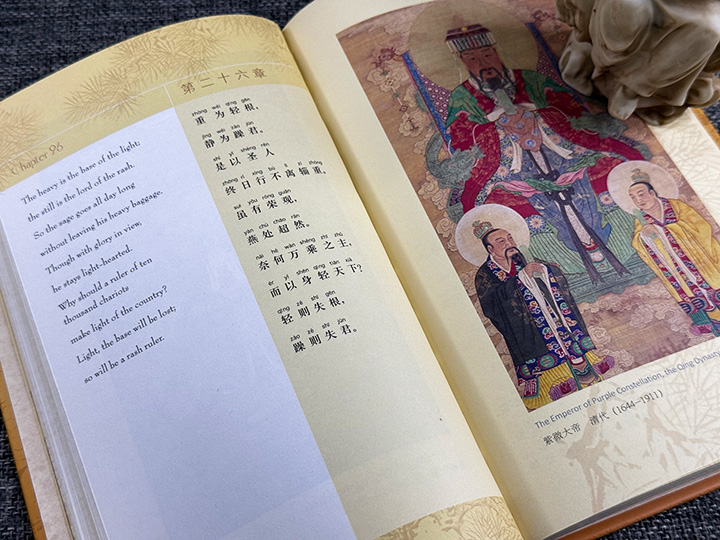 Chapter 26
The heavy is the base of the light;
the still is the lord of the rash.
So the sage goes all day long
without leaving his heavy baggage.
Though with glory in view,
he stays light-hearted.
Why should a ruler of ten
thousand chariots
make light of the country?
Light, the base will be lost;
so will be a rash ruler.
第二十六章
zhòng wéi qīng gēn
重为轻根，
jìng wéi zào jūn
静为躁君。
shì yǐ shèng rén
是以圣人
zhōng rì xíng bù lí zī zhòng
终日行不离辎重。
suī yǒu róng guān
虽有荣观，
yàn chǔ chāo rán
燕处超然。
nài hé wàn shèng zhī zhǔ
奈何万乘之主，
ér yǐ shēn qīng tiān xià
而以身轻天下？
qīng zé shī gēn
轻则失根，
zào zé shī jūn
躁则失君。
The Emperor of Purple Constellation, the Qing Dynasty
紫微大帝 清代（1644—1911）